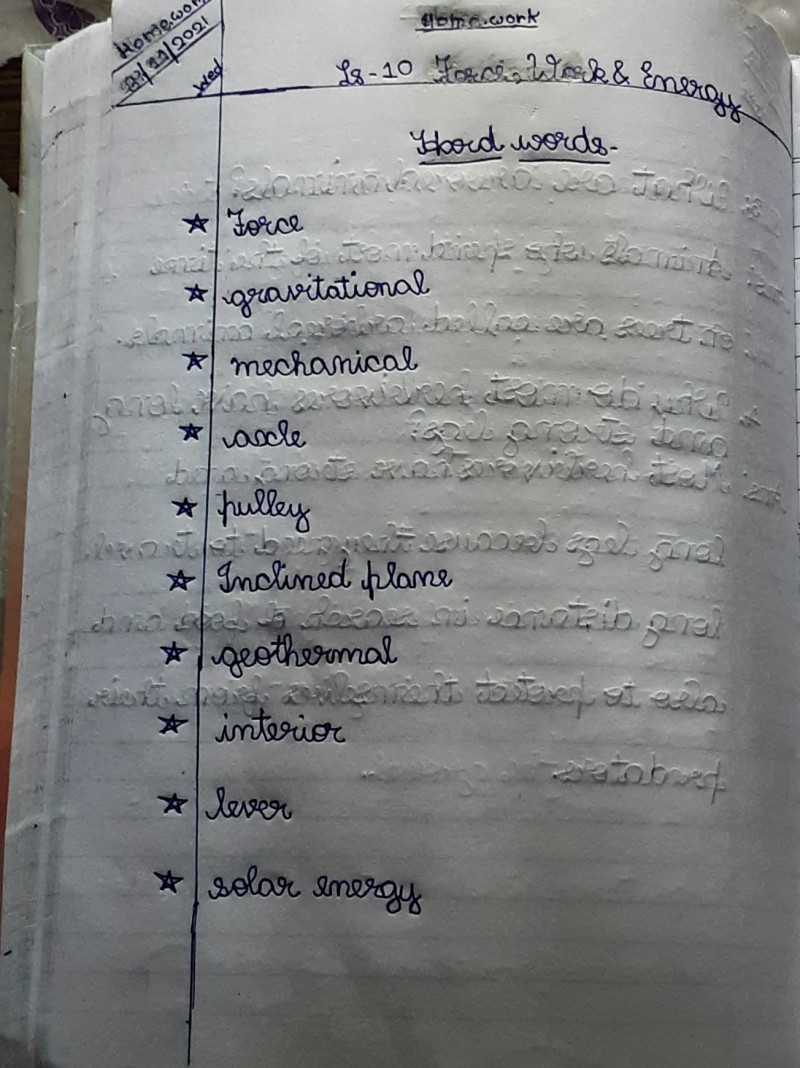 Home.work
Home.work
/2021
Wed
Ls-10 Force, Work & Energy
Hard words-
☆ Force
☆ gravitational
☆ mechanical
☆ axle
☆ pulley
☆ Inclined plane
☆ geothermal
☆ interior
☆ lever
☆ solar energy